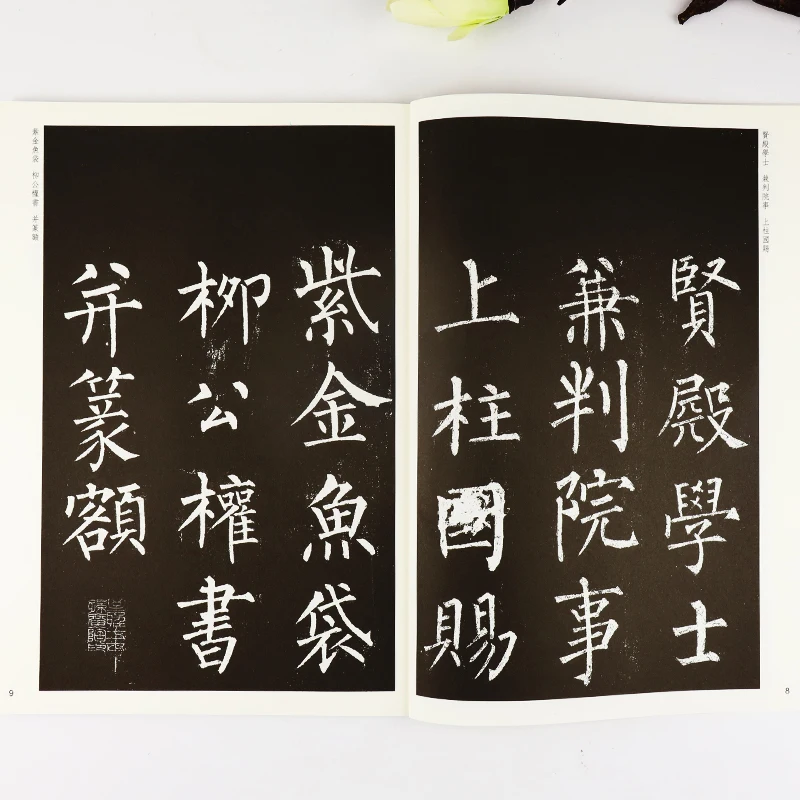 賢殿學士 兼判院事 上柱國賜
賢殿學士
兼判院事
上柱國賜
8
紫金魚袋 柳公權書 并篆額
紫金魚袋
柳公權書
并篆額
9